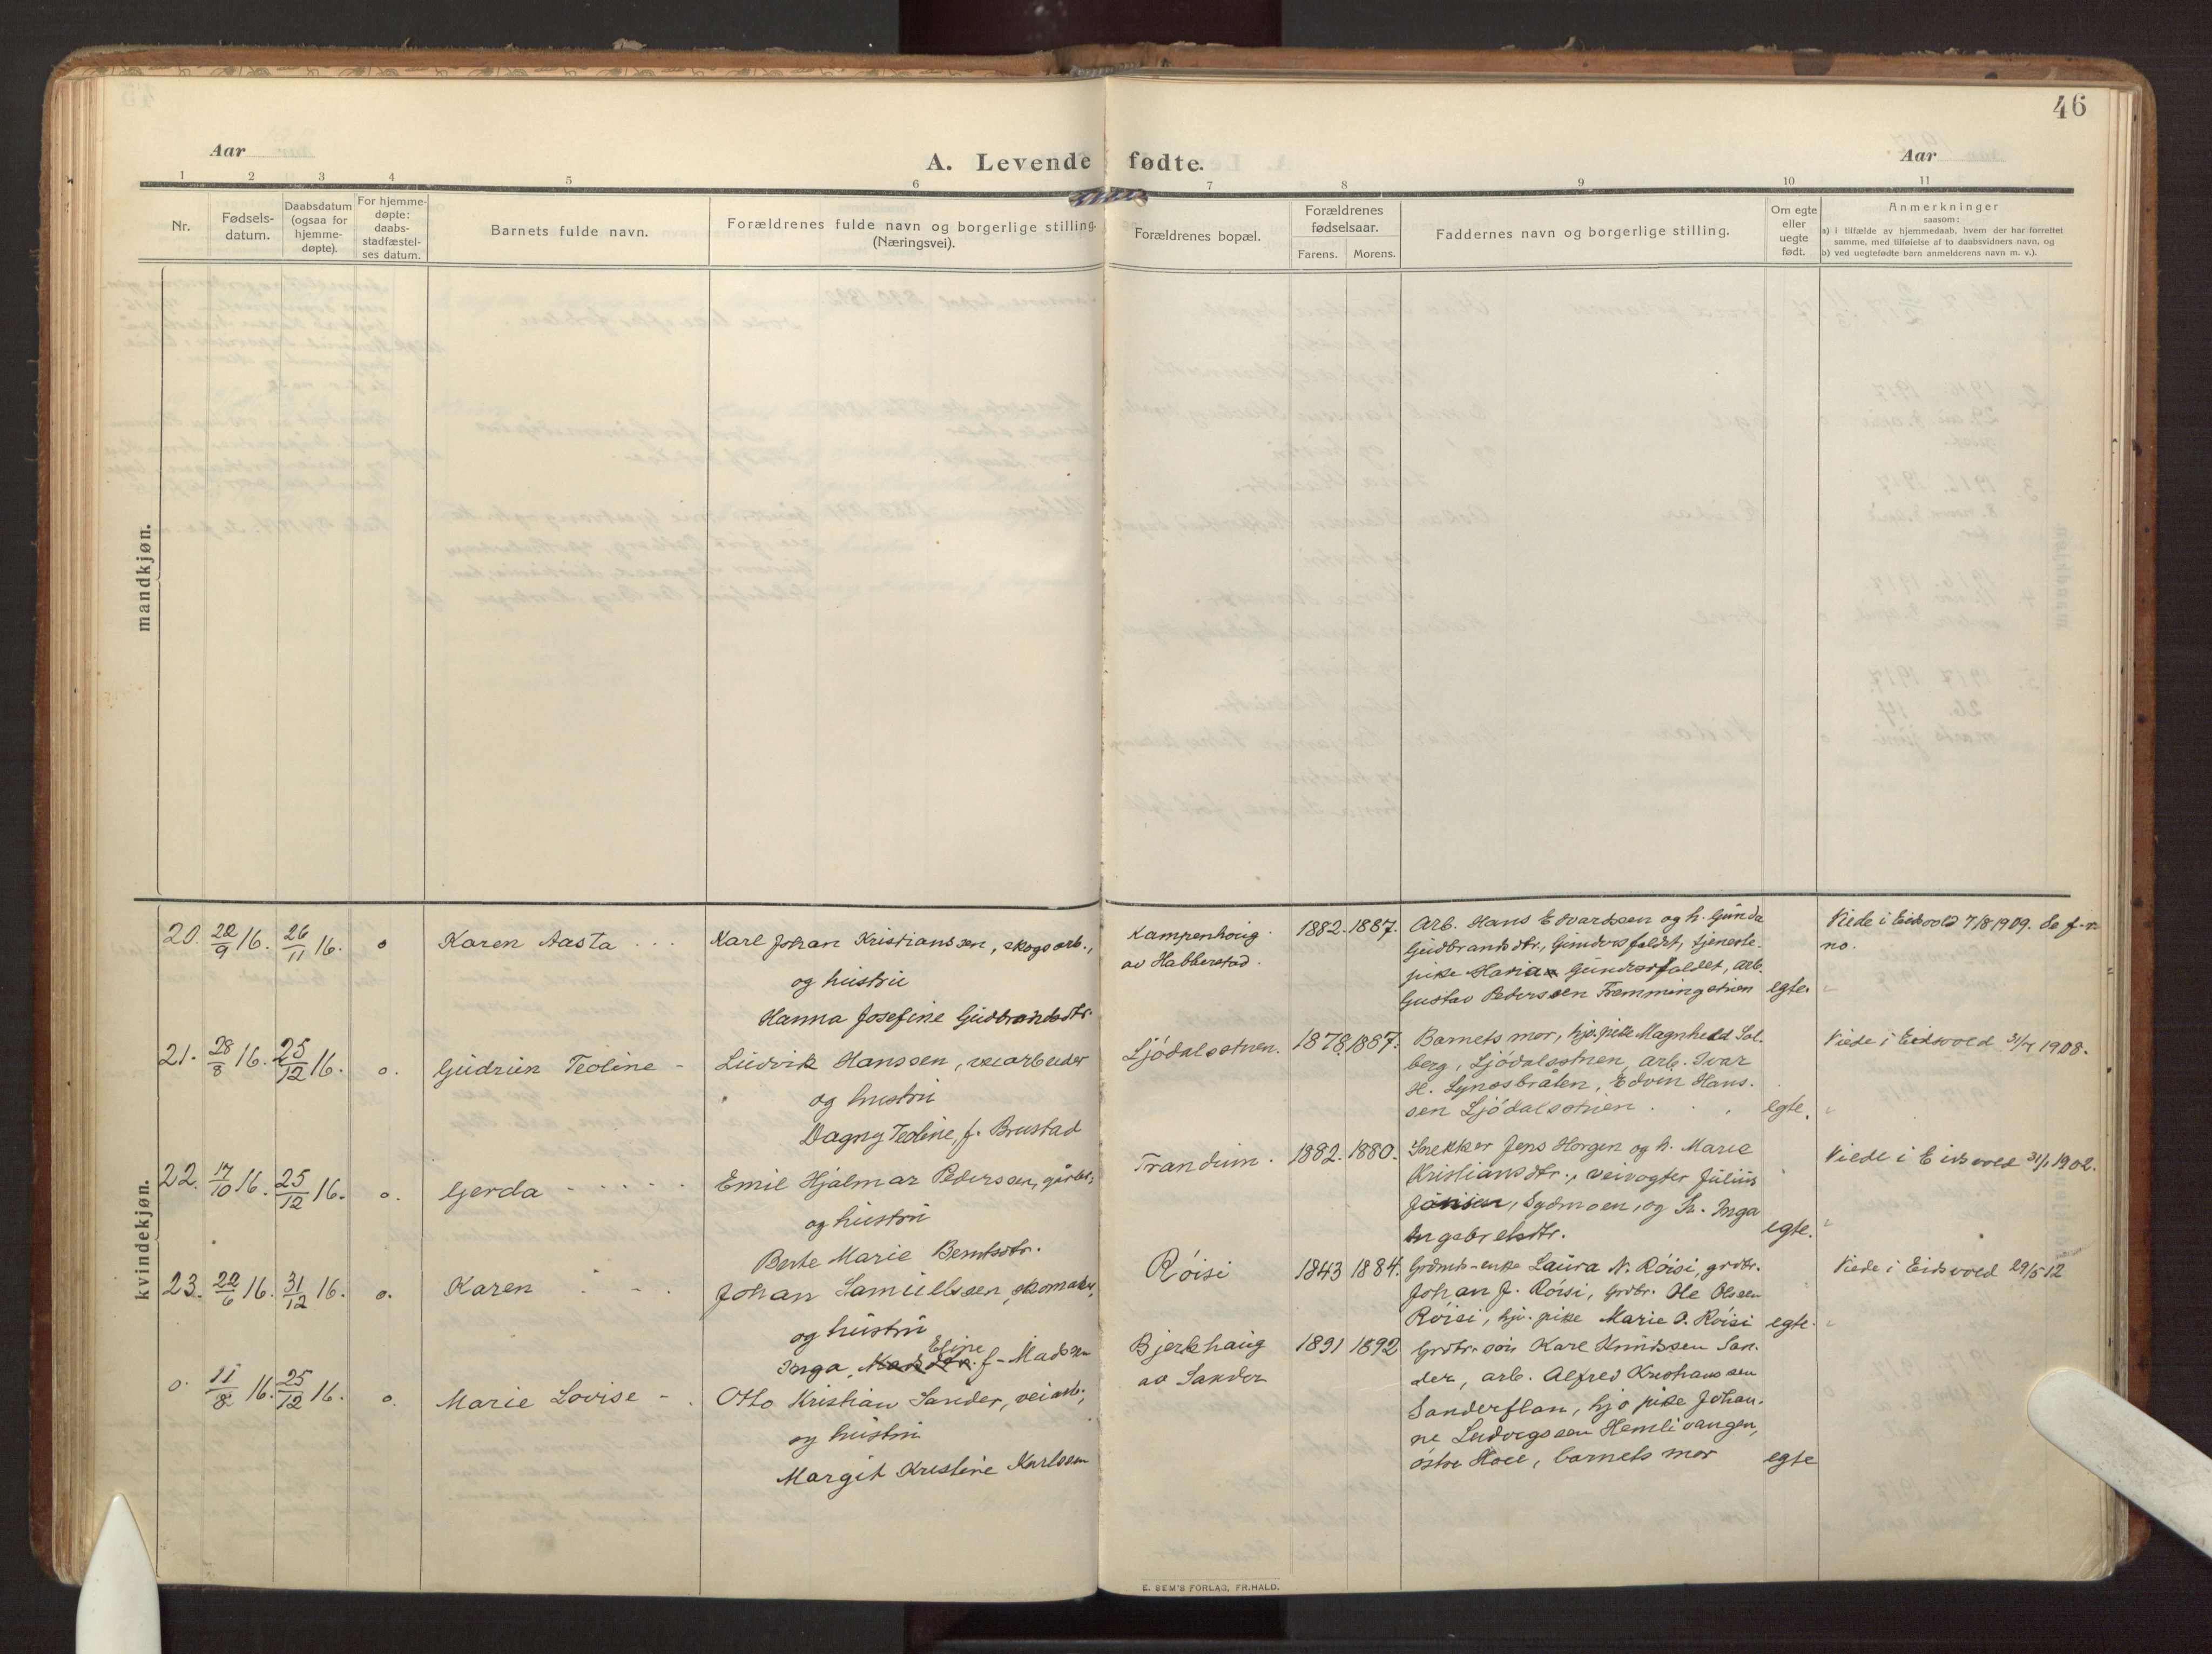 46
Aar
A. Levende fødte.
Aar
1 2 3 4 5 6 7 8 9 10 11
Nr.
Fødsels-
datum.
Daabsdatum
(ogsaa for
hjemme-
døpte).
For hjemme-
døpte:
daabs-
stadfæstel-
ses datum.
Barnets fulde navn.
Forældrenes fulde navn og borgerlige stilling.
(Næringsvei).
Forældrenes bopæl.
Forældrenes
fødselsaar.
Farens. Morens.
Faddernes navn og borgerlige stilling.
Om egte
eller
uegte
født.
Anmerkninger
saasom:
a) i tilfælde av hjemmedaab, hvem der har forrettet
samme, med tilføielse af to daabsvidners navn, og
b) ved uegtefødte barn anmelderens navn m. v.).
mandkjøn.
kvindekjøn.
20. 22/9 16. 26/11 16. o
Karen Aasta . . .
Karl Johan Kristianssen, skogsarb.,
og hustru
Hanna Josefine Gudbrandsdtr.
Kampenhoug.
av Habberstad.
1882. 1887.
Arb. Hans Edvardsen og h. Gunda
Gudbrandsdtr., Gundersfaldet, tjeneste-
pike Maria Gundersfaldet, arb.
Gustav Pederssen Fremmingstuen
egte.
Viede i Eidsvold 7/8 1909. de f. n.
no.
21. 28/8 16. 25/12 16. o.
Gudrun Teoline -
Ludvik Hanssen, veiarbeider
og hustru
Dagny Teoline, f. Brustad
Ljödalsstuen.
1878. 1887.
Barnets mor, hjv. pike Magnhild Sol-
berg, Ljödalsstuen, arb. Ivar
H. Lynæsbråten, Edvin Hans-
sen Ljödalsstuen . . .
egte.
Viede i Eidsvold 1908.
22. 17/10 16. 25/12 16. o.
Gerda - - - - -
Emil Hjalmar Pederssen, gårbr.,
og hustru
Berte Marie Berntsdtr.
Trandum.
1882. 1880.
Snekker Jens Horgen og h. Marie
Kristiansdtr., veivogter Julius
Jansen, Sydmoen, og h. Inga
Ingebretsdtr.
egte.
Viede i Eidsvold 1902.
23. 22/6 16. 31/12 16. o.
Karen - - -
Johan Samuelssen, skomaker,
og hustru
Eline
Inga, f. Madsen
Röisi
1843 1884.
Grdmds-enke Laura N. Röisi, grdbr.
Johan J. Röisi, grdbr. Ole Olssen
Röisi, hjv. pike Marie O. Röisi
egte.
Viede i Eidsvold 29/5 12
o. 11/8 16. 25/12 16. o.
Marie Lovise - .
Otto Kristian Sander, veiarb.,
og hustru
Margit Kristine Karlssen
Bjerkhaug
av Sander
1891 1892
Grdbr. søn Karl Knudssen San-
der, arb. Alfred Kristianssen
Sanderflan, hjv pike Johan-
ne Ludvigssen Hemlivangen,
östre Hoel, barnets mor
egte
E. SEM'S FORLAG, FR.HALD.